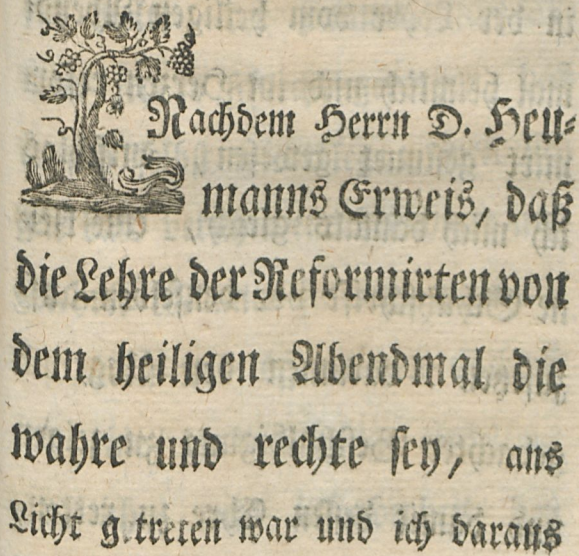 Nachdem Herrn D. Heu-
manns Erweis, daß
die Lehre der Reformirten von
dem heiligen Abendmal die
wahre und rechte sey, ans
Licht getreten war und ich daraus